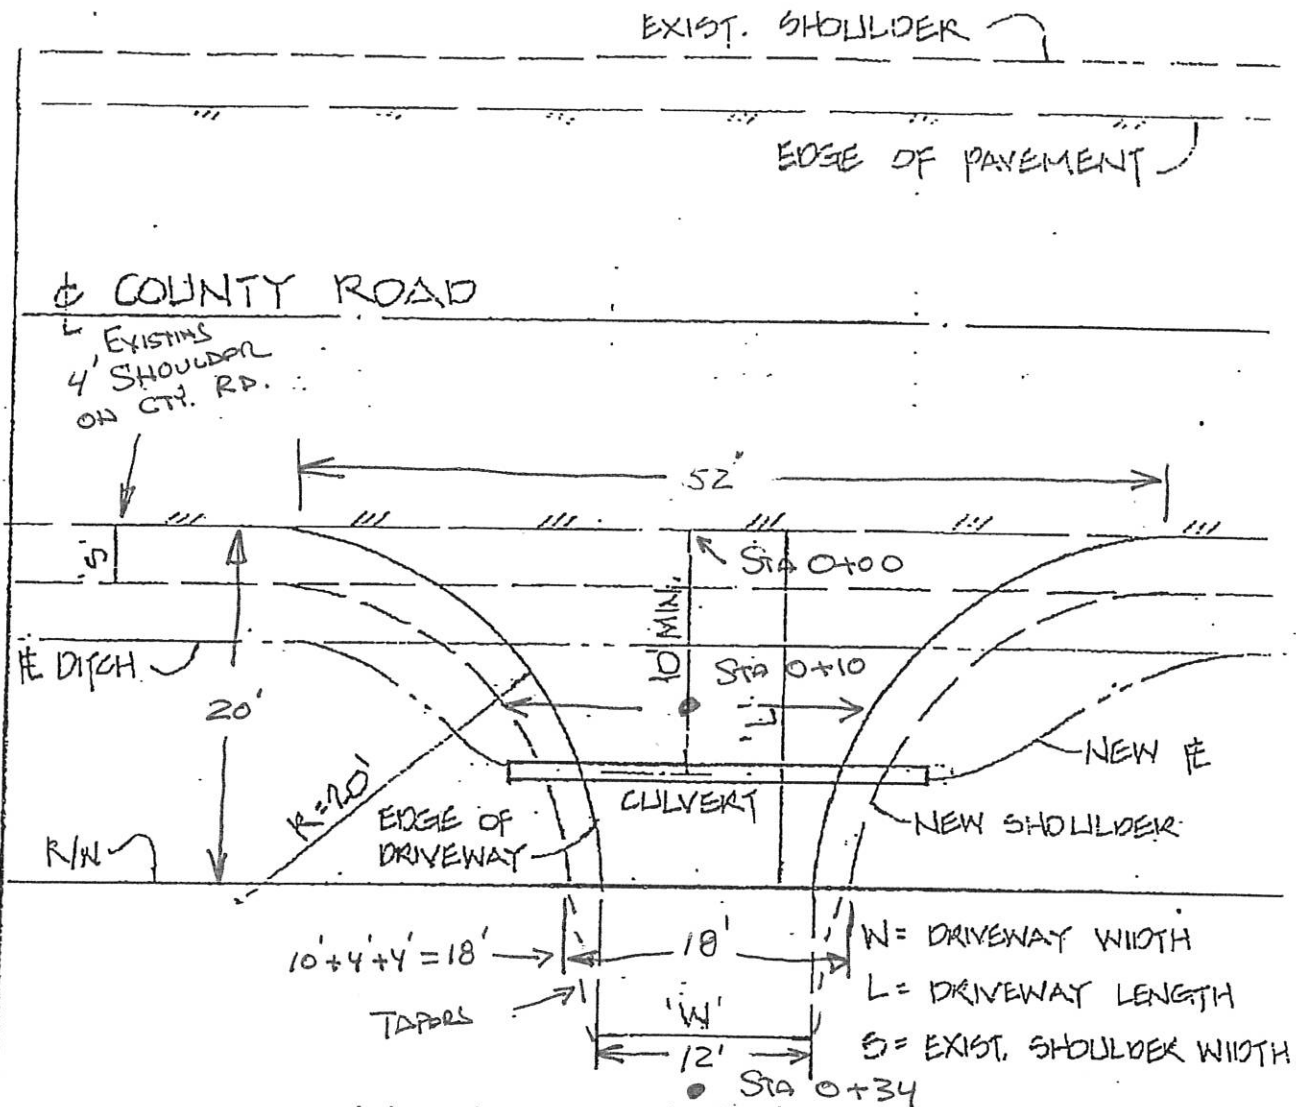 EXIST. SHOULDER
EDGE OF PAVEMENT
℄ COUNTY ROAD
EXISTING
4' SHOULDER
ON CTY. RD.
52"
'S'
STA 0+00
10' MIN.
℄ DITCH
STA 0+10
20'
'L'
NEW ℄
R=20'
CULVERT
EDGE OF
DRIVEWAY
NEW SHOULDER
R/W
10'+4'+4'=18'
18'
W= DRIVEWAY WIDTH
TAPERS
L= DRIVEWAY LENGTH
'W'
12'
S= EXIST. SHOULDER WIDTH
STA 0+34